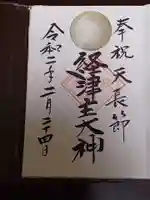 奉祝天長節
経津主大神
令和二年二月二十四日